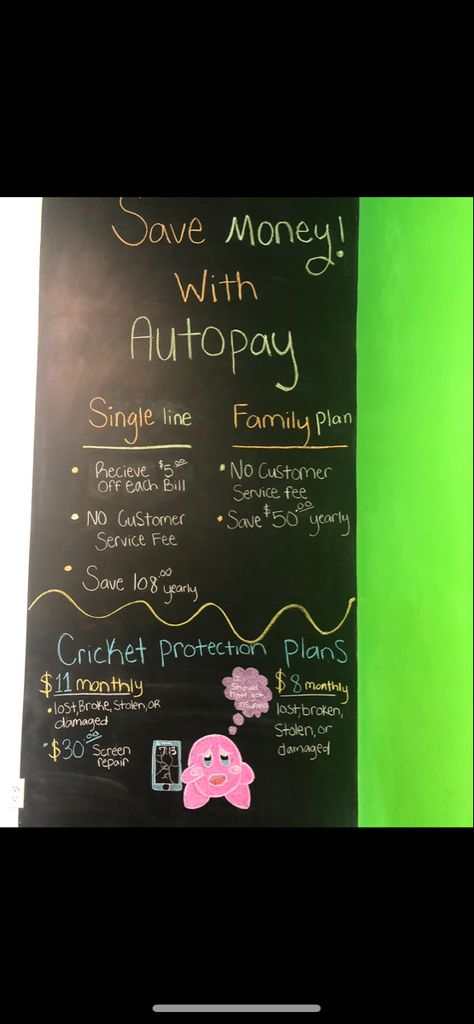 Save Money!
With
Autopay
Single line
• Recieve $5.00
Off Each Bill
• NO Customer
Service Fee
• Save 108.00 yearly
Family plan
• NO Customer
Service fee
• Save $50.00 yearly
Cricket Protection Plans
$11 monthly
• lost, Broke, Stolen, OR
damaged
• $30.00 Screen
repair
7:13
I
Should
have got
$8 monthly
lost, broken,
Stolen, or
damaged